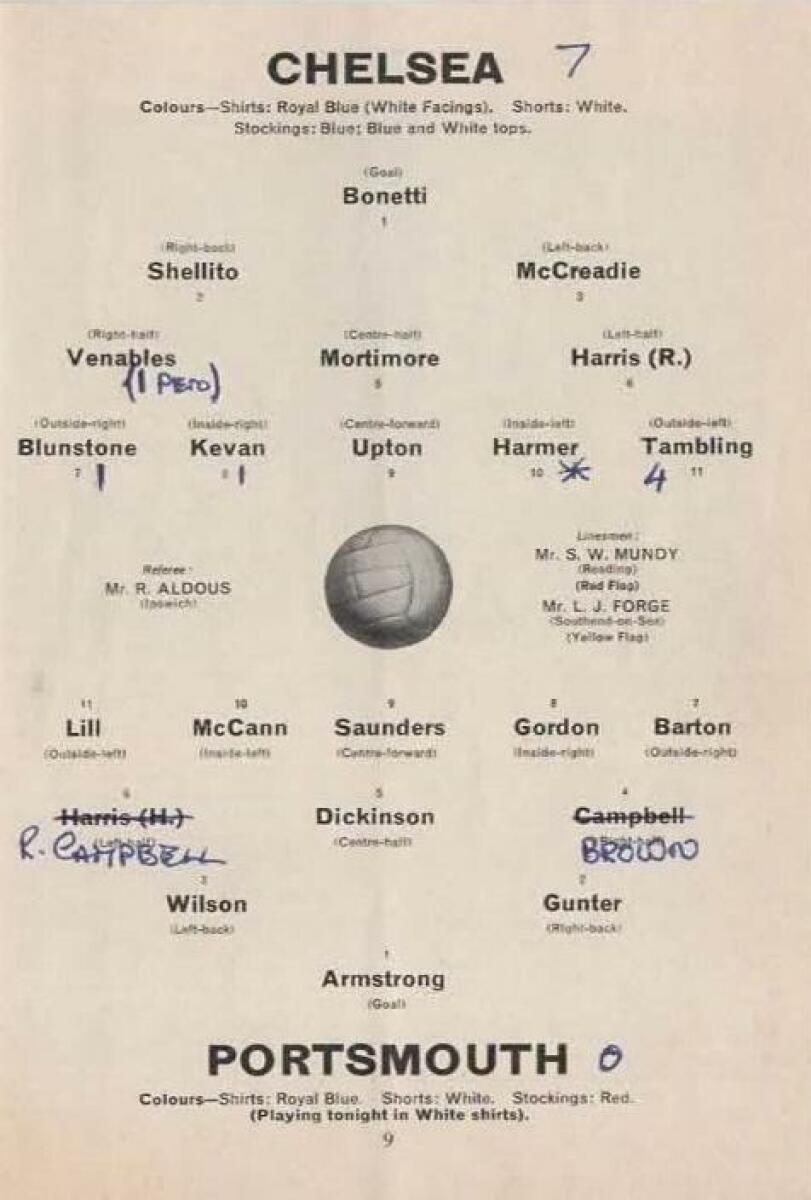 CHELSEA 7
Colours—Shirts: Royal Blue (White Facings). Shorts: White.
Stockings: Blue; Blue and White tops.
(Goal)
Bonetti
1
(Right-back) (Left-back)
Shellito McCreadie
2 3
(Right-half) (Centre-half) (Left-half)
Venables Mortimore Harris (R.)
(1 PEN) 5 6
(Outside-right) (Inside-right) (Centre-forward) (Inside-left) (Outside-left)
Blunstone Kevan Upton Harmer Tambling
7 1 8 1 9 10 * 4 11
Linesmen:
Mr. S. W. MUNDY
(Reading)
(Red Flag)
Referee:
Mr. R. ALDOUS
(Ipswich)
Mr. L. J. FORGE
(Southend-on-Sea)
(Yellow Flag)
11 10 9 8 7
Lill McCann Saunders Gordon Barton
(Outside-left) (Inside-left) (Centre-forward) (Inside-right) (Outside-right)
6 5 4
Harris (H.) Dickinson Campbell
(Left-half) (Centre-half) (Right-half)
R. CAMPBELL BROWN
3 2
Wilson Gunter
(Left-back) (Right-back)
1
Armstrong
(Goal)
PORTSMOUTH 0
Colours—Shirts: Royal Blue. Shorts: White. Stockings: Red.
(Playing tonight in White shirts).
9